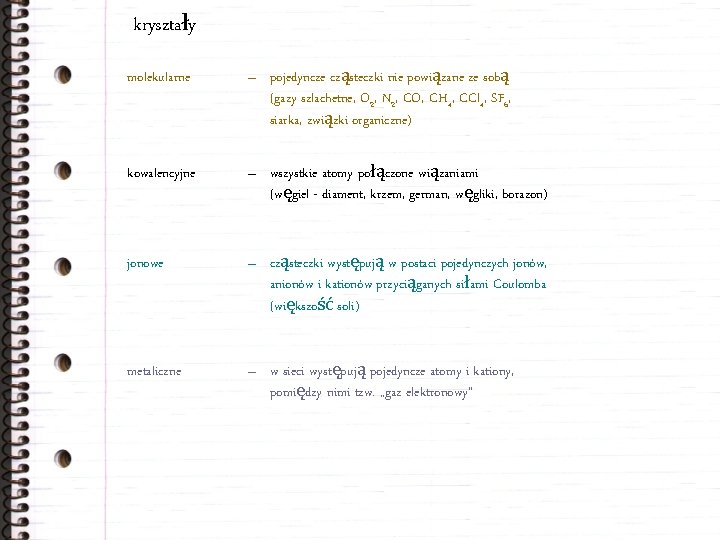 kryształy
molekularne – pojedyncze cząsteczki nie powiązane ze sobą
(gazy szlachetne, O₂, N₂, CO, CH₄, CCl₄, SF₆,
siarka, związki organiczne)
kowalencyjne – wszystkie atomy połączone wiązaniami
(węgiel - diament, krzem, german, węgliki, borazon)
jonowe – cząsteczki występują w postaci pojedynczych jonów,
anionów i kationów przyciąganych siłami Coulomba
(większość soli)
metaliczne – w sieci występują pojedyncze atomy i kationy,
pomiędzy nimi tzw. „gaz elektronowy"